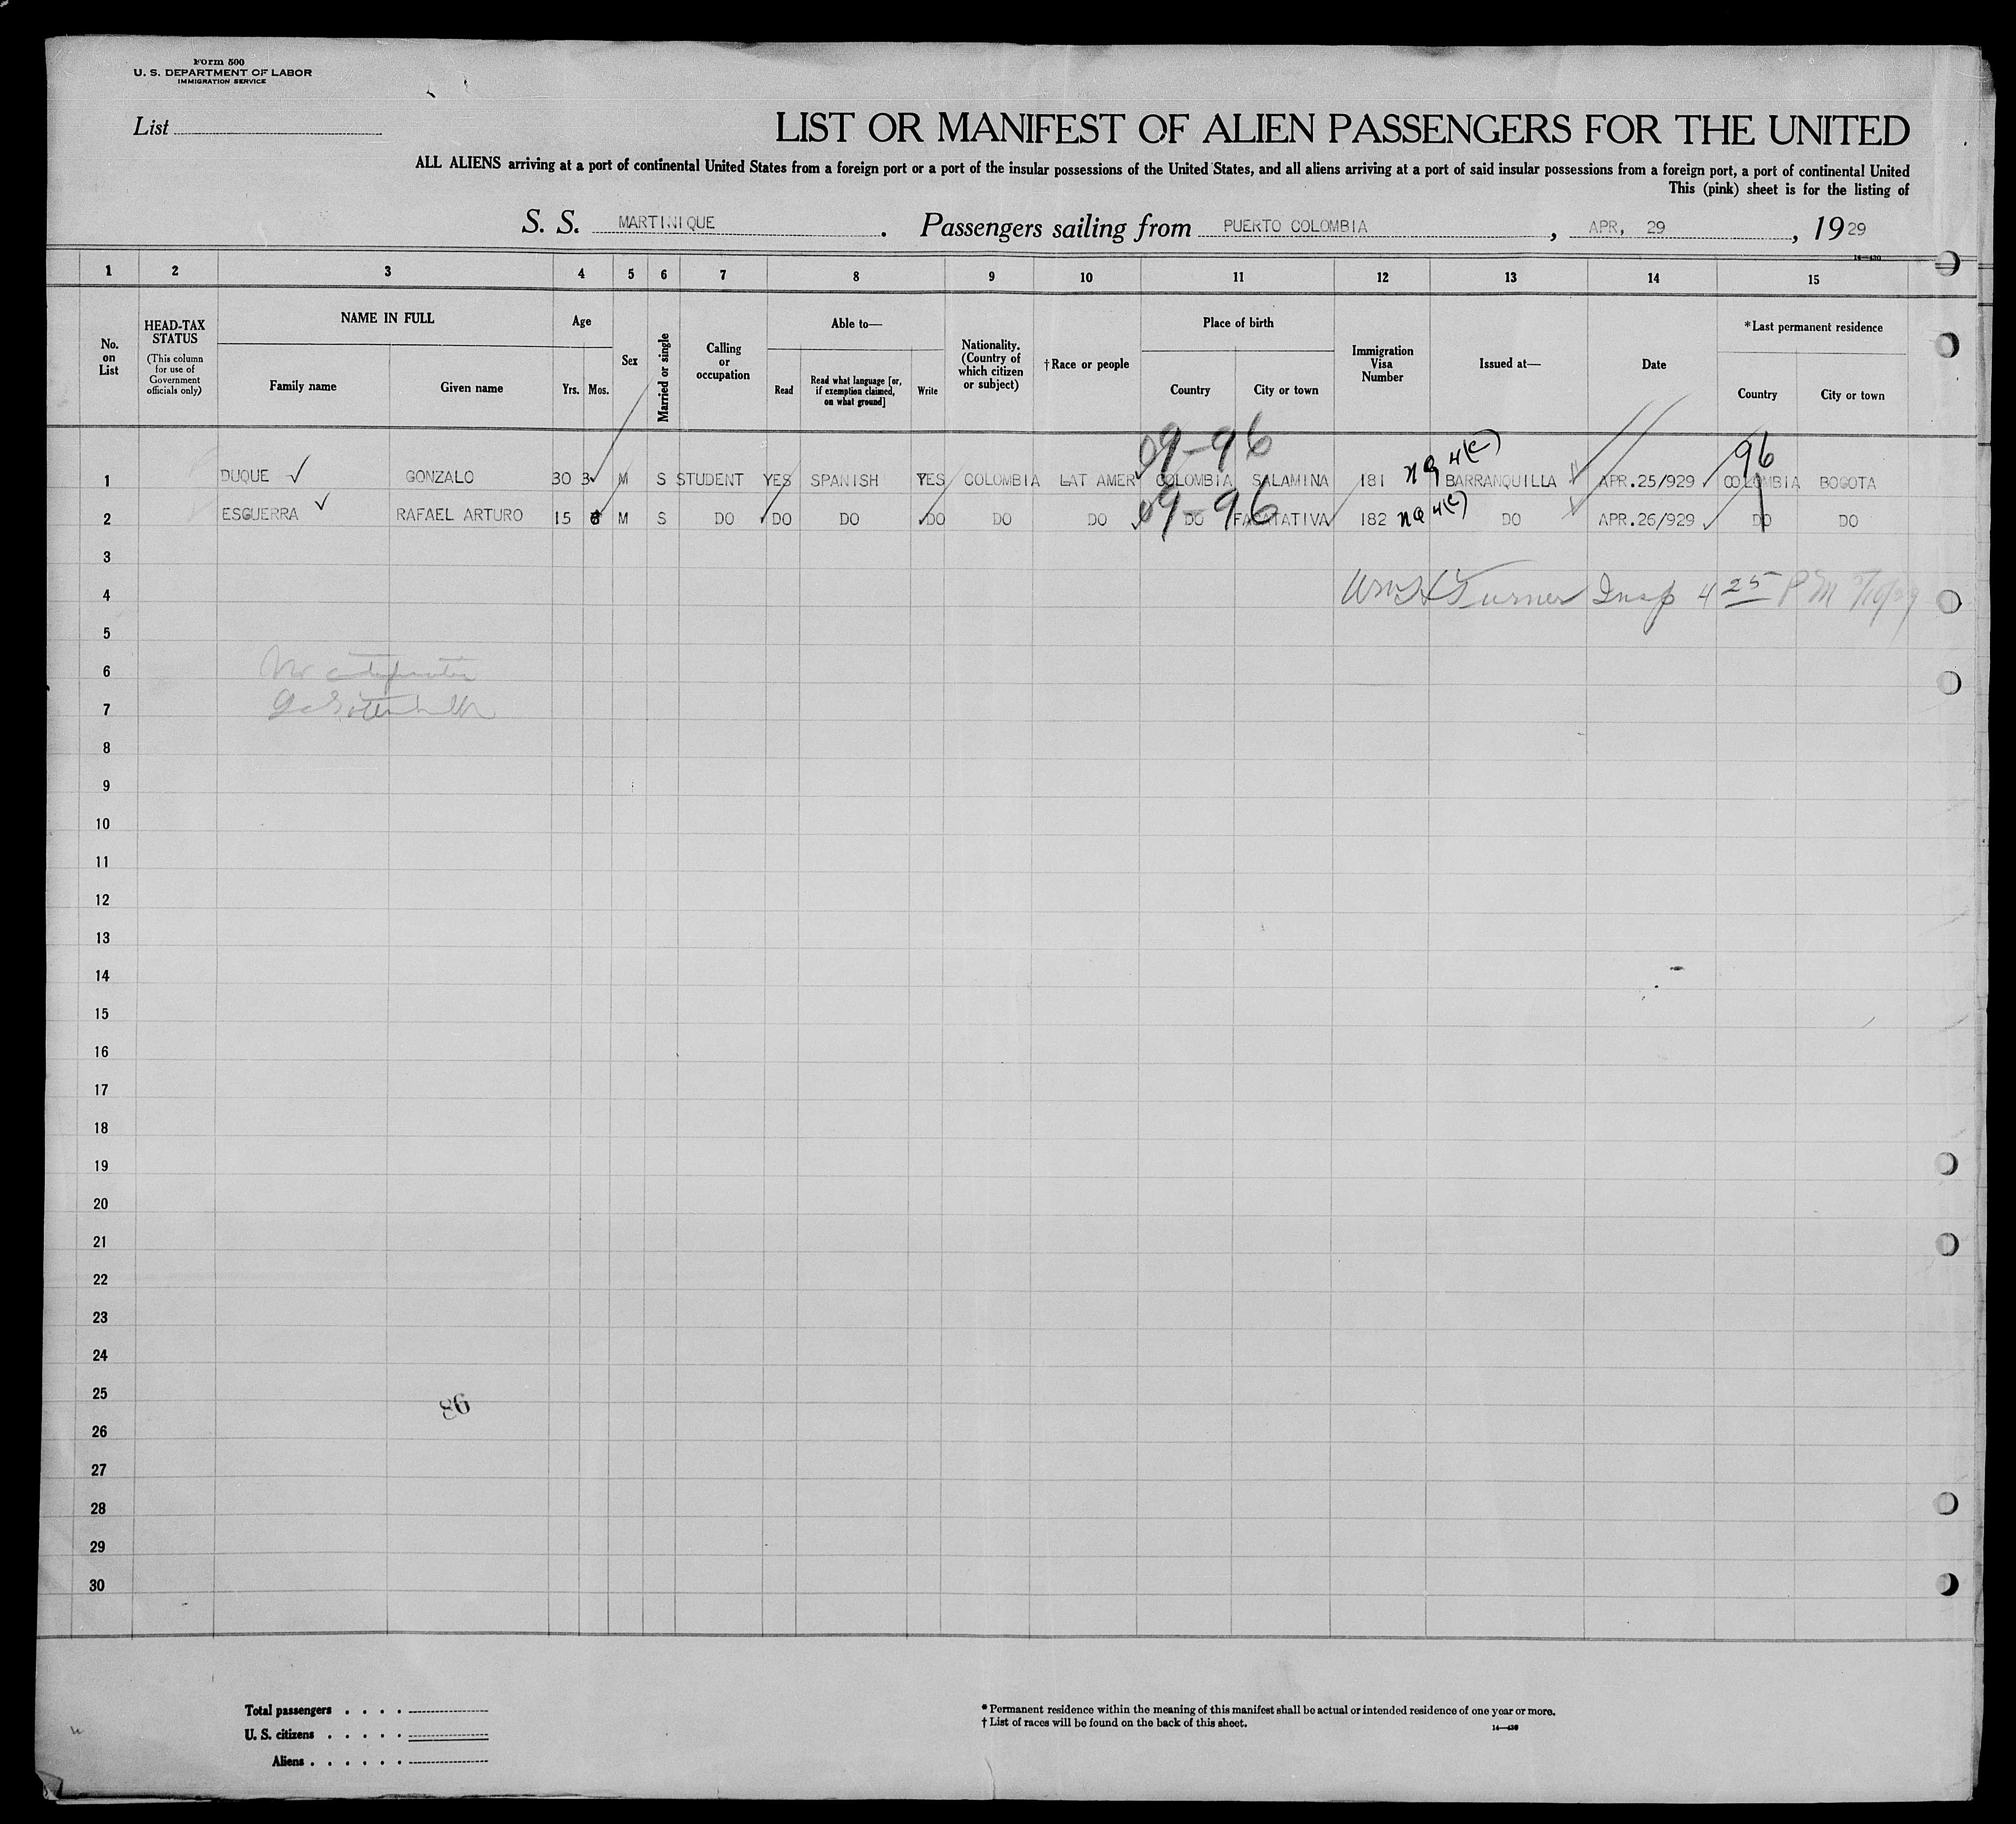 Form 500
U. S. DEPARTMENT OF LABOR
IMMIGRATION SERVICE
List
LIST OR MANIFEST OF ALIEN PASSENGERS FOR THE UNITED
ALL ALIENS arriving at a port of continental United States from a foreign port or a port of the insular possessions of the United States, and all aliens arriving at a port of said insular possessions from a foreign port, a port of continental United
This (pink) sheet is for the listing of
S. S. MARTINIQUE. Passengers sailing from PUERTO COLOMBIA, APR, 29, 1929
1 2 3 4 5 6 7 8 9 10 11 12 13 14 15
No. on List
HEAD-TAX STATUS
(This column for use of Government officials only)
NAME IN FULL
Family name Given name
Age
Yrs. Mos.
Sex
Married or single
Calling or occupation
Able to—
Read
Read what language [or, if exemption claimed, on what ground]
Write
Nationality. (Country of which citizen or subject)
†Race or people
Place of birth
Country City or town
Immigration Visa Number
Issued at—
Date
*Last permanent residence
Country City or town
09-96 96
1 DUQUE GONZALO 30 3 M S STUDENT YES SPANISH YES COLOMBIA LAT AMER COLOMBIA SALAMINA 181 nq 4(e) BARRANQUILLA APR.25/929 COLOMBIA BOGOTA
09-96
2 ESGUERRA RAFAEL ARTURO 15 6 M S DO DO DO DO DO DO DO FACATATIVA 182 nq 4(e) DO APR.26/929 DO DO
3
4 Turner Insp 4 25 PM
5
6
7
8
9
10
11
12
13
14
15
16
17
18
19
20
21
22
23
24
25
86
26
27
28
29
30
Total passengers
U. S. citizens
Aliens
* Permanent residence within the meaning of this manifest shall be actual or intended residence of one year or more.
† List of races will be found on the back of this sheet.